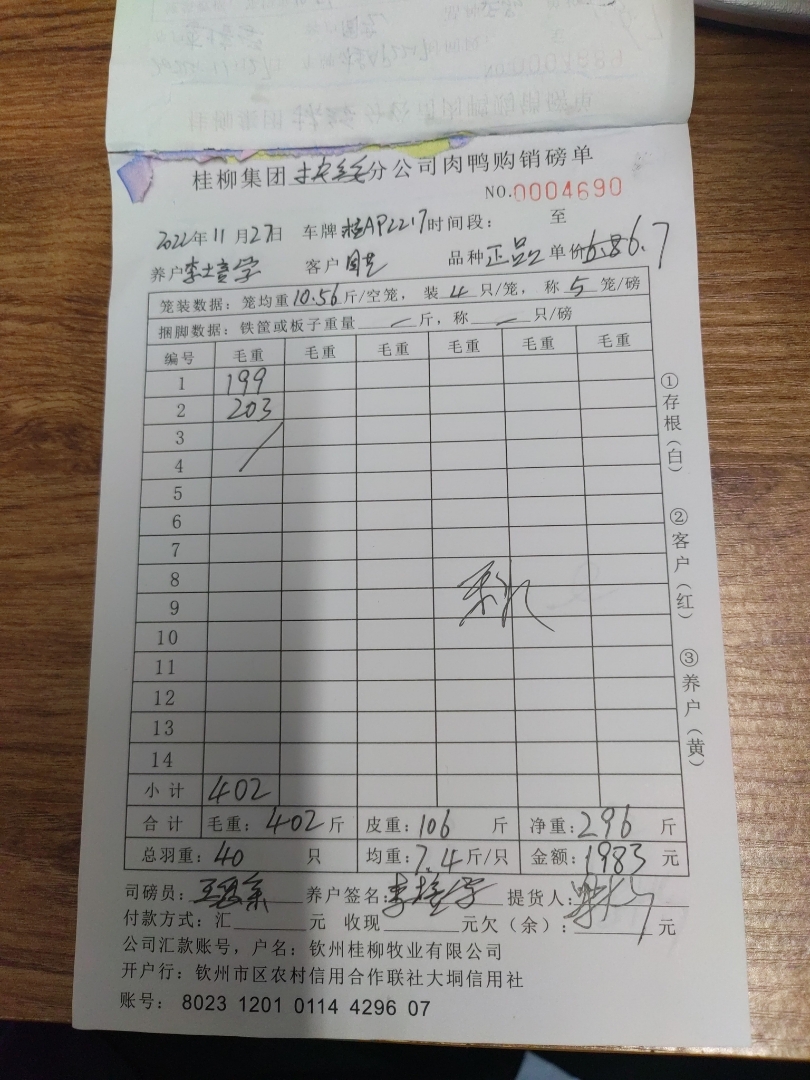 桂柳集团 分公司肉鸭购销磅单
NO.0004690
2022年11月27日 车牌 桂AP2217 时间段： 至
养户 李土 学 客户 品种 正品 单价 6.7
笼装数据：笼均重10.56斤/空笼，装4只/笼，称5笼/磅
捆脚数据：铁筐或板子重量 / 斤，称 / 只/磅
编号 毛重 毛重 毛重 毛重 毛重 毛重
1 199
2 203
3
4
5
6
7
8
9
10
11
12
13
14
小计 402
合计 毛重：402斤 皮重：106 斤 净重：296 斤
总羽重：40 只 均重：7.4斤/只 金额：1983元
司磅员： 养户签名： 提货人：
付款方式：汇 元 收现 元欠（余）： 元
公司汇款账号，户名：钦州桂柳牧业有限公司
开户行：钦州市区农村信用合作联社大垌信用社
账号： 8023 1201 0114 4296 07
①存根（白）
②客户（红）
③养户（黄）